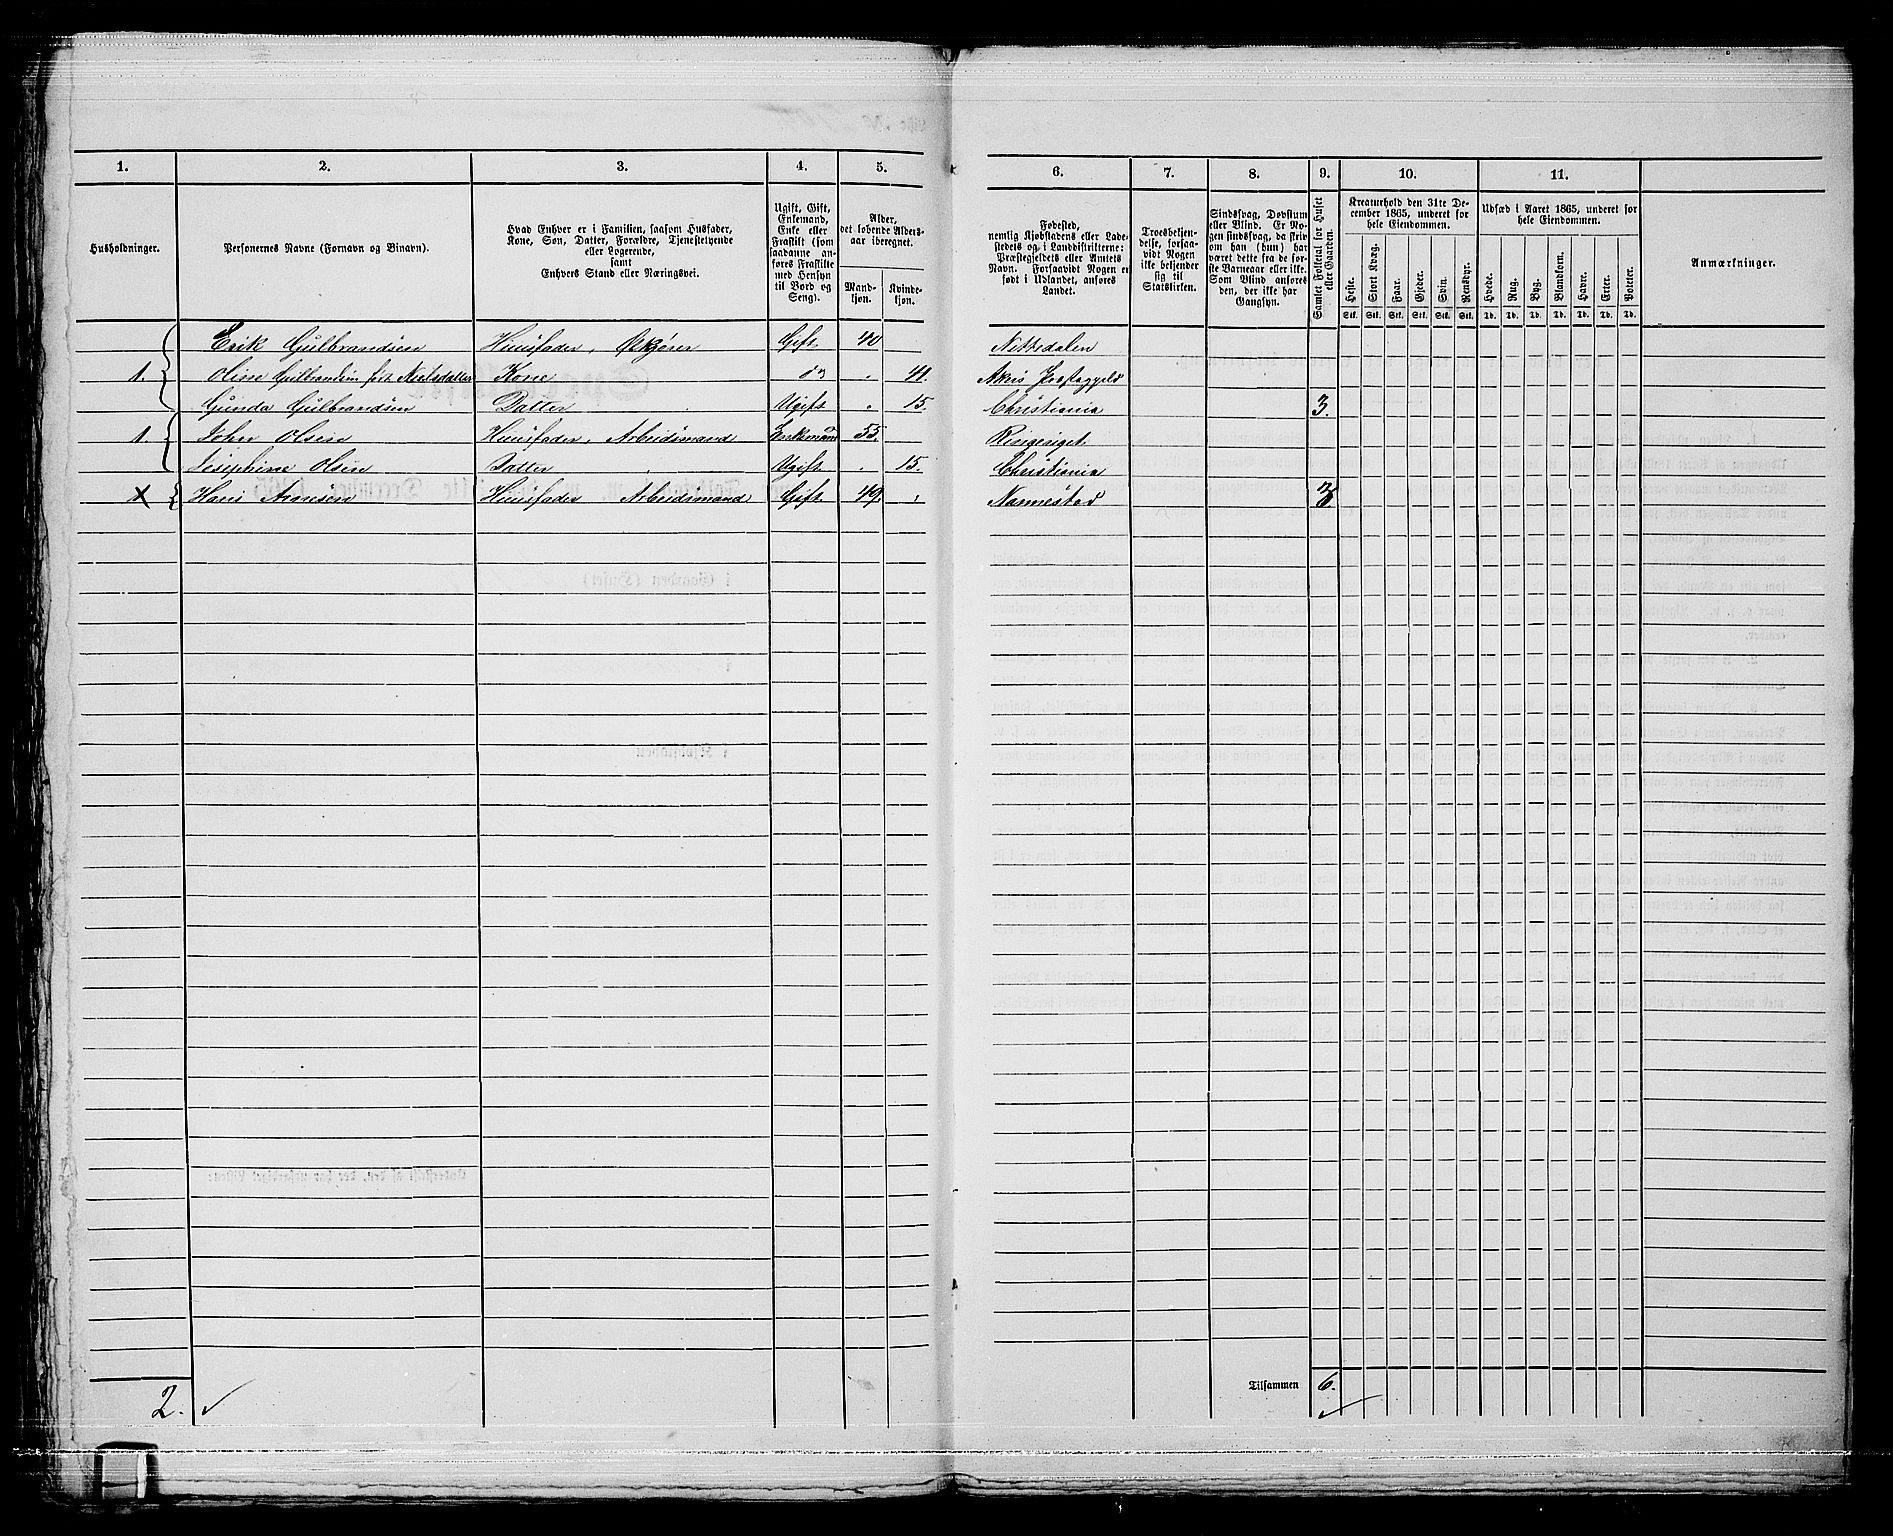 1. 2. 3. 4. 5. 6. 7. 8. 9. 10. 11.
Husholdninger.
Personernes Navne (Fornavn og Binavn).
Hvad Enhver er i Familien, saasom Husfader,
Kone, Søn, Datter, Forældre, Tjenestetyende
eller Logerende,
samt
Enhvers Stand eller Næringsvei.
Ugift, Gift,
Enkemand,
Enke eller
Fraskilt (som
saadanne an-
føres Fraskilte
med Hensyn
til Bord og
Seng).
Alder,
det løbende Alders-
aar iberegnet.
Mand-
kjøn.
Kvinde-
kjøn.
Fødested,
nemlig Kjøbstadens eller Lade-
stedets og i Landdistrikterne:
Præstegjeldets eller Amtets
Navn. Forsaavidt Nogen er
født i Udlandet, anføres
Landet.
Troesbekjen-
delse, forsaa-
vidt Nogen
ikke bekjender
sig til
Statskirken.
Sindssvag, Døvstum
eller Blind. Er No-
gen sindssvag, da skriv
om han (hun) har
været dette fra de før-
ste Barneaar eller ikke.
Som Blind anføres
den, der ikke har
Gangsyn.
Samlet Folketal for Huset
eller Gaarden.
Kreaturhold den 31te De-
cember 1865, underet for
hele Eiendommen.
Heste. Stort Kvæg. Faar. Gjeder. Svin. Rensdyr.
Stk. Stk. Stk. Stk. Stk. Stk.
Udsæd i Aaret 1865, underet for
hele Eiendommen.
Hvede. Rug. Byg. Blandkorn. Havre. Erter. Poteter.
Td. Td. Td. Td. Td. Td. Td.
Anmærkninger.
Erik Gulbrandsen Huusfader, Gift 40 Nittedalen
1. Oline Gulbrandsen født Neelsdatter Kone do " 41. Akers Præstegjeld
Gunda Gulbrandsen Datter Ugift " 15. Christiania 3.
1. John Olsen Huusfader, Arbeidsmand Enkemand 55. Ringeriget
Josephine Olsen Datter Ugift " 15. Christiania
Hans Aronsen Huusfader Arbeidsmand Gift 49. " Nannestad 3
2. ✓
Tilsammen 6.
✓